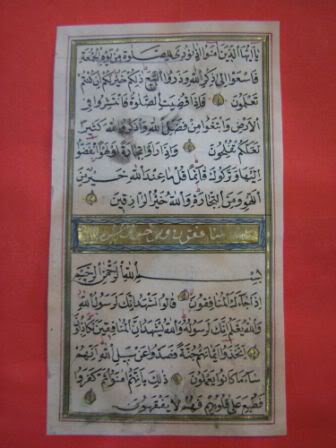 يَا اَيُّهَا الَّذِينَ اٰمَنُوا اِذَا نُودِىَ لِلصَّلٰوةِ مِنْ يَوْمِ الْجُمُعَةِ
فَاسْعَوْا اِلٰى ذِكْرِ اللهِ وَذَرُوا الْبَيْعَ ذٰلِكُمْ خَيْرٌ لَكُمْ اِنْ كُنْتُمْ
تَعْلَمُونَ فَاِذَا قُضِيَتِ الصَّلٰوةُ فَانْتَشِرُوا فِى
الْاَرْضِ وَابْتَغُوا مِنْ فَضْلِ اللهِ وَاذْكُرُوا اللهَ كَثِيرًا
لَعَلَّكُمْ تُفْلِحُونَ وَاِذَا رَاَوْا تِجَارَةً اَوْ لَهْوًا انْفَضُّوا
اِلَيْهَا وَتَرَكُوكَ قَائِمًا قُلْ مَا عِنْدَ اللهِ خَيْرٌ مِنَ
اللَّهْوِ وَمِنَ التِّجَارَةِ وَاللهُ خَيْرُ الرَّازِقِينَ
بِسْمِ اللهِ الرَّحْمٰنِ الرَّحِيمِ
اِذَا جَاءَكَ الْمُنَافِقُونَ قَالُوا نَشْهَدُ اِنَّكَ لَرَسُولُ اللهِ
وَاللهُ يَعْلَمُ اِنَّكَ لَرَسُولُهُ وَاللهُ يَشْهَدُ اِنَّ الْمُنَافِقِينَ لَكَاذِبُونَ
اِتَّخَذُوا اَيْمَانَهُمْ جُنَّةً فَصَدُّوا عَنْ سَبِيلِ اللهِ اِنَّهُمْ
سَاءَ مَا كَانُوا يَعْمَلُونَ ذٰلِكَ بِاَنَّهُمْ اٰمَنُوا ثُمَّ كَفَرُوا
فَطُبِعَ عَلٰى قُلُوبِهِمْ فَهُمْ لَا يَفْقَهُونَ